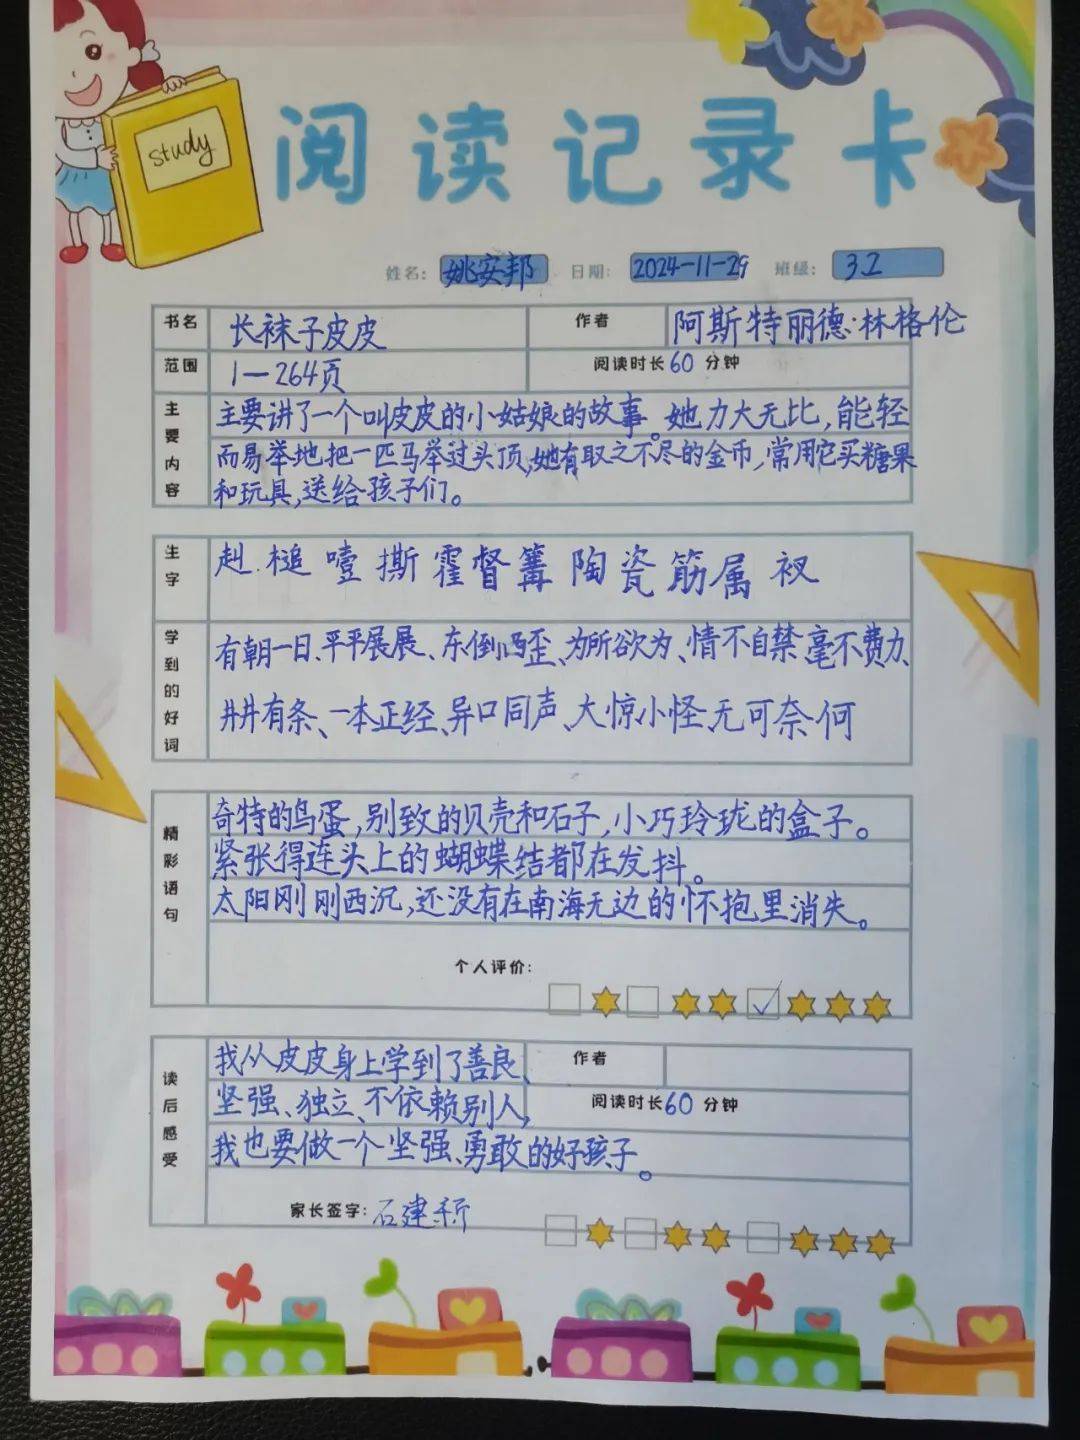 study
阅读记录卡
姓名: 姚安邦 日期: 2024-11-29 班级: 3.2
书名 长袜子皮皮 作者 阿斯特丽德·林格伦
范围 1—264页 阅读时长60分钟
主要内容
主要讲了一个叫皮皮的小姑娘的故事。她力大无比,能轻
而易举地把一匹马举过头顶,她有取之不尽的金币,常用它买糖果
和玩具,送给孩子们。
生字 赳 槌 噎 撕 霍 督 篝 陶 瓷 筋 属 衩
学到的好词
有朝一日、平平展展、东倒西歪、为所欲为、情不自禁、毫不费力、
井井有条、一本正经、异口同声、大惊小怪、无可奈何
精彩语句
奇特的鸟蛋,别致的贝壳和石子,小巧玲珑的盒子。
紧张得连头上的蝴蝶结都在发抖。
太阳刚刚西沉,还没有在南海无边的怀抱里消失。
个人评价:
读后感受
我从皮皮身上学到了善良、 作者
坚强、独立、不依赖别人, 阅读时长60分钟
我也要做一个坚强、勇敢的好孩子。
家长签字: 石建新